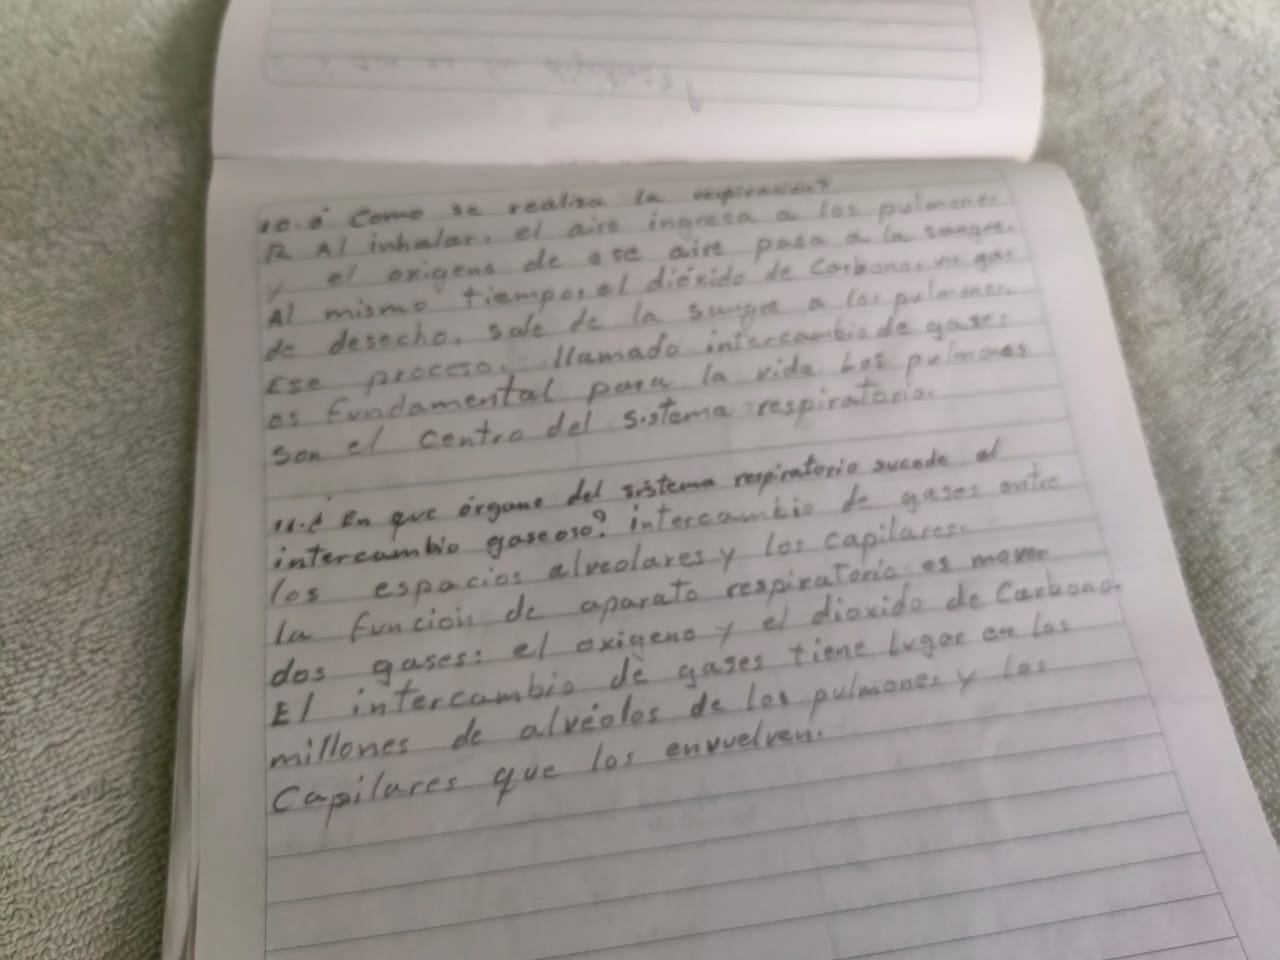 10. ¿ Como se realisa la respiracion?
R Al inhalar, el aire ingresa a los pulmones
y el oxigeno de ese aire pasa a la sangre.
Al mismo tiempo, el dióxido de Carbono, un gas
de desecho, sale de la sangre a los pulmones.
Ese proceso, llamado intercambio de gases
es fundamental para la vida Los pulmones
son el centro del sistema respiratorio.
11. ¿ En que órgano del sistema respiratorio sucede el
intercambio gaseoso? intercambio de gases entre
los espacios alveolares y los capilares.
la función de aparato respiratorio es mover
dos gases: el oxigeno y el dioxido de Carbono.
El intercambio de gases tiene lugar en los
millones de alvéolos de los pulmones y los
Capilares que los envuelven.